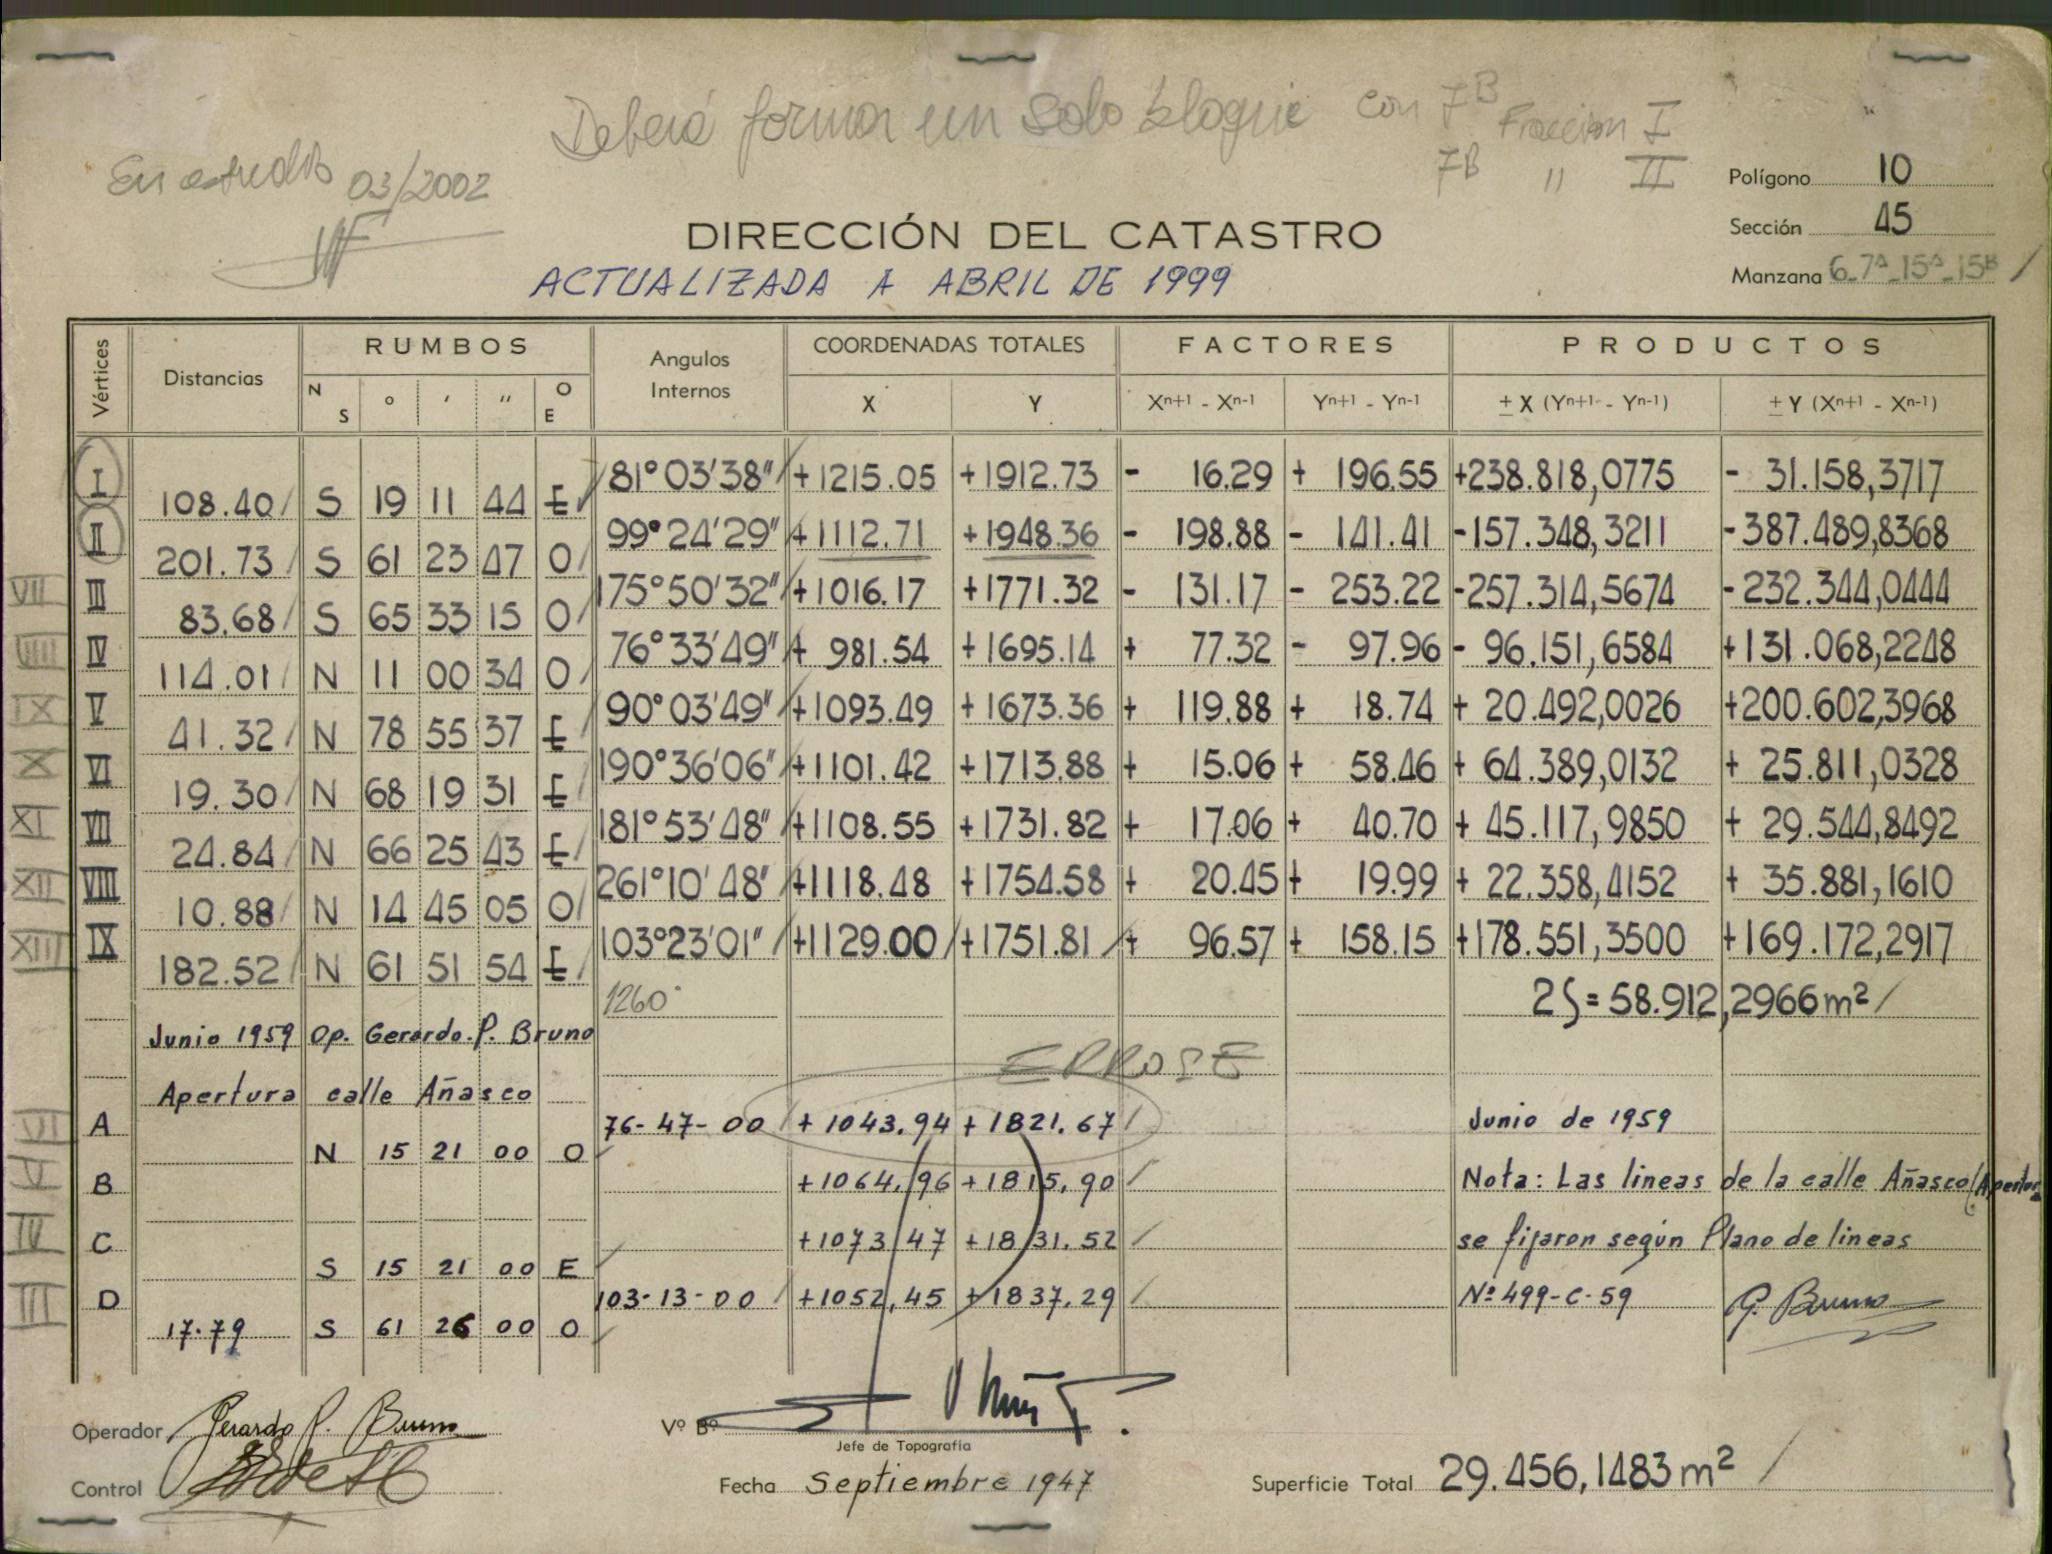 Deberá formar un solo bloque con 7B Fraccion I
7B " II
En estudio 03/2002
Polígono 10
Sección 45
Manzana 6-7ᴬ-15ᴬ-15ᴮ /
DIRECCIÓN DEL CATASTRO
ACTUALIZADA A ABRIL DE 1999
Vértices Distancias RUMBOS Angulos Internos COORDENADAS TOTALES FACTORES PRODUCTOS
N S ° ' " O E X Y Xⁿ⁺¹ - Xⁿ⁻¹ Yⁿ⁺¹ - Yⁿ⁻¹ ± X (Yⁿ⁺¹ - Yⁿ⁻¹) ± Y (Xⁿ⁺¹ - Xⁿ⁻¹)
I 81°03'38" +1215.05 +1912.73 - 16.29 + 196.55 +238.818,0775 - 31.158,3717
108.40 S 19 11 44 E
II 99°24'29" +1112.71 +1948.36 - 198.88 - 141.41 -157.348,3211 -387.489,8368
201.73 S 61 23 47 O
VII III 175°50'32" +1016.17 +1771.32 - 131.17 - 253.22 -257.314,5674 -232.344,0444
83.68 S 65 33 15 O
VIII IV 76°33'49" + 981.54 +1695.14 + 77.32 - 97.96 - 96.151,6584 +131.068,2248
114.01 N 11 00 34 O
IX V 90°03'49" +1093.49 +1673.36 + 119.88 + 18.74 + 20.492,0026 +200.602,3968
41.32 N 78 55 37 E
X VI 190°36'06" +1101.42 +1713.88 + 15.06 + 58.46 + 64.389,0132 + 25.811,0328
19.30 N 68 19 31 E
XI VII 181°53'48" +1108.55 +1731.82 + 17.06 + 40.70 + 45.117,9850 + 29.544,8492
24.84 N 66 25 43 E
XII VIII 261°10'48" +1118.48 +1754.58 + 20.45 + 19.99 + 22.358,4152 + 35.881,1610
10.88 N 14 45 05 O
XIII IX 103°23'01" +1129.00 +1751.81 + 96.57 + 158.15 +178.551,3500 +169.172,2917
182.52 N 61 51 54 E
1260° 2S = 58.912,2966 m²
Junio 1959 Op. Gerardo. P. Bruno
Apertura calle Añasco
VI A 76-47-00 + 1043.94 + 1821.67 Junio de 1959
N 15 21 00 O
V B +1064.96 +1815.90 Nota: Las lineas de la calle Añasco (Apertura
IV C +1073.47 +1831.52 se fijaron según Plano de lineas
S 15 21 00 E
III D 103-13-00 +1052,45 +1837.29 Nº 499-C-59 G. Bruno
17.79 S 61 26 00 O
Operador Gerardo P. Bruno
Vº Bº
Jefe de Topografía
Control
Fecha Septiembre 1947
Superficie Total 29.456,1483 m²